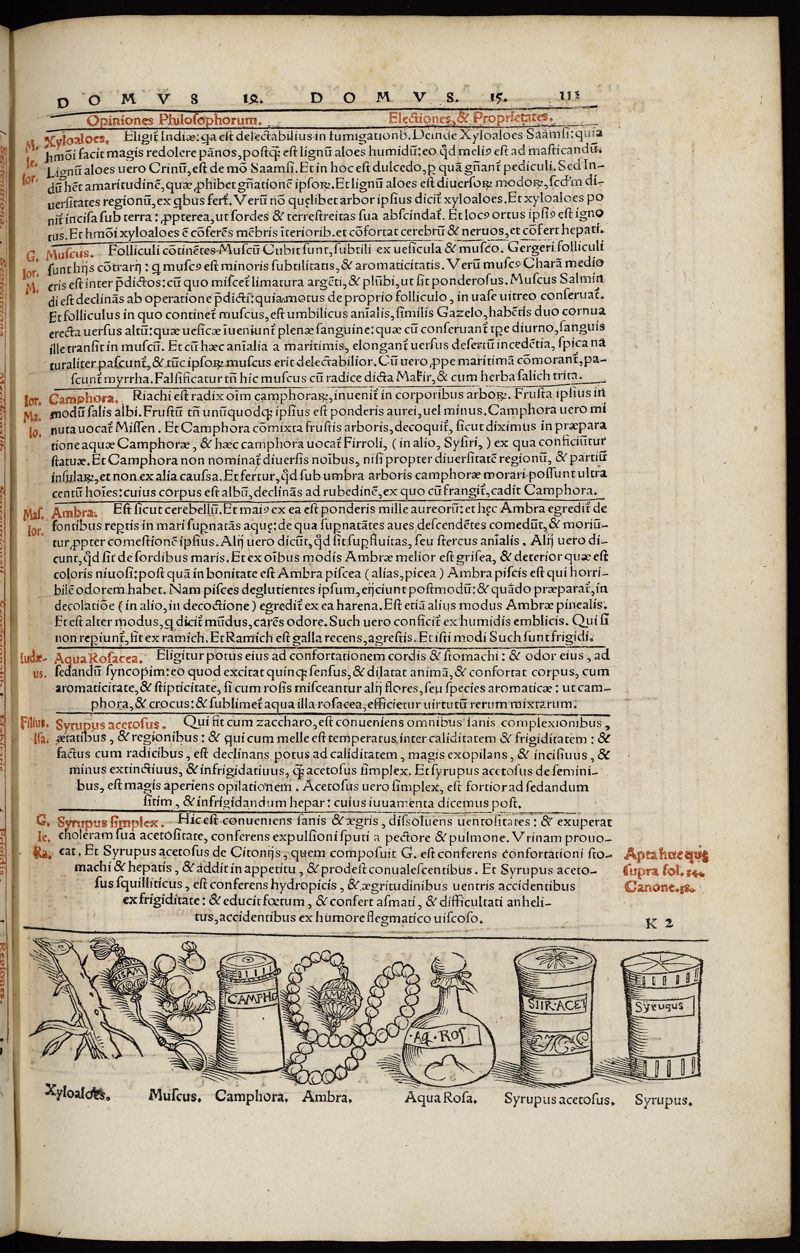 DOMVS 12. DOMVS. 15. 111
Opiniones Philosophorum. Electiones, & Proprietates.
M. Xyloaloes. Eligit̃ Indiæ: q̃a est delectabilius in fumigationib. Deinde Xyloaloes Saamsi: quia
Ie. hmõi facit magis redolere pãnos, postq̃ est lignũ aloes humidũ: eo q̃d melis est ad masticandũ.
Ior. Lignũ aloes uero Crinũ, est de mõ Saamsi. Et in hoc est dulcedo, p quã gñant̃ pediculi. Sed In-
dũ hẽt amaritudinẽ, quæ ꝓhibet gñationẽ ipsoꝝ. Et lignũ aloes est diuersoꝝ modoꝝ, scd'm di-
uersitates regionũ, ex q̃bus fert̃. Verũ nõ quęlibet arbor ipsius dicit̃ xyloaloes. Et xyloaloes po
nit̃ incisa sub terra: ꝓpterea, ut sordes & terrestreitas sua abscindat̃. Et locꝰ ortus ipsiꝰ est igno
tus. Et hmõi xyloaloes ẽ cõferẽs mẽbris ĩteriorib. et cõfortat cerebrũ & neruos, et cõfert hepati.
G. Muscus. Folliculi cõtinẽtes Muscũ Cubit sunt, subtili ex uesicula & musco. Gergeri folliculi
Ior. sunt hrijs cõtrarij: q̃ muscꝰ est minoris subtilitatis, & aromaticitatis. Verũ muscꝰ Chara medio
M. cris est inter p̃dictos: cũ quo miscet̃ limatura argẽti, & plũbi, ut sit ponderosus. Muscus Salmin
di est declinãs ab operatione p̃dicti: quia motus de proprio folliculo, in uase uitreo conseruat̃.
Et folliculus in quo continet̃ muscus, est umbilicus aĩalis, similis Gazelo, habẽtis duo cornua
erecta uersus altũ: quæ uesicæ ĩueniunt̃ plenæ sanguine: quæ cũ conseruant̃ tp̃e diurno, sanguis
ille transit in muscũ. Et cũ hæc aĩalia a maritimis, elongant̃ uersus desertũ incedẽtia, spica na
turaliter pascunt̃, & tũc ipsoꝝ muscus erit delectabilior. Cũ uero ꝓpe maritimã cõmorant̃, pa-
scunt̃ myrrha. Falsificatur tñ hic muscus cũ radice dicta Mafir, & cum herba salich trita.
Ior. Camphora. Riachi est radix oĩm camphoraꝝ, inuenit̃ in corporibus arboꝝ. Frusta ipsius in
Ma. modũ salis albi. Frustũ tñ unũquodq̃ ipsius est ponderis aurei, uel minus. Camphora uero mi
Io. nuta uocat̃ Missen. Et Camphora cõmixta frustis arboris, decoquit̃, sicut diximus in præpara
tione aquæ Camphoræ, & hæc camphora uocat̃ Firroli, (in alio, Sysiri,) ex qua conficiũtur
statuæ. Et Camphora non nominat̃ diuersis noĩbus, nisi propter diuersitatẽ regionũ, & partiũ
insulaꝝ, et non ex alia caussa. Et fertur, q̃d sub umbra arboris camphoræ morari possunt ultra
centũ hoĩes: cuius corpus est albũ, declinãs ad rubedinẽ, ex quo cũ frangit̃, cadit Camphora.
Mas. Ambra. Est sicut cerebellũ. Et maiꝰ ex ea est ponderis mille aureorũ: et hęc Ambra egredit̃ de
Ior. fontibus reptis in mari supnatãs aquę: de qua supnatãtes aues descendẽtes comedũt, & moriũ-
tur, ꝓpter comestiõnẽ ipsius. Alij uero dicũt, q̃d sit supfluitas, seu stercus aĩalis. Alij uero di-
cunt, q̃d sit de sordibus maris. Et ex oĩbus modis Ambræ melior est grisea, & deterior quæ est
coloris niuosi: post quã in bonitate est Ambra piscea (alias, picea) Ambra piscis est qui horri-
bilẽ odorem habet. Nam pisces deglutientes ipsum, eijciunt postmodũ: & quãdo præparat̃, in
decolatiõe (in alio, in decoctione) egredit̃ ex ea harena. Est etiã alius modus Ambræ pinealis.
Et est alter modus, q̃ dicit̃ mũdus, carẽs odore. Such uero conficit̃ ex humidis emblicis. Qui si
non repiunt̃, fit ex ramich. Et Ramich est galla recens, agrestis. Et isti modi Such sunt frigidi.
Iudæ- Aqua Rosacea. Eligitur potus eius ad confortationem cordis & stomachi: & odor eius, ad
us. sedandũ syncopim: eo quod excitat quinq̃ sensus, & dilatat animã, & confortat corpus, cum
aromaticitate, & stipticitate, si cum rosis misceantur alij flores, seu species aromaticæ: ut cam-
phora, & crocus: & sublimet̃ aqua illa rosacea, efficietur uirtutũ rerum mixtarum.
Filius. Syrupus acetosus. Qui fit cum zaccharo, est conueniens omnibus sanis complexionibus,
Isa. ætatibus, & regionibus: & qui cum melle est temperatus, inter caliditatem & frigiditatem: &
factus cum radicibus, est declinans potus ad caliditatem, magis exopilans, & incisiuus, &
minus extinctiuus, & infrigidatiuus, q̃ acetosus simplex. Et syrupus acetosus de semini-
bus, est magis aperiens opilationem. Acetosus uero simplex, est fortior ad sedandum
sitim, & infrigidandum hepar: cuius iuuamenta dicemus post.
G. Syrupus simplex. Hic est conueniens sanis & ægris, dissoluens uentositates: & exuperat
Ie. choleram sua acetositate, conferens expulsioni sputi a pectore & pulmone. Vrinam prouo-
Ra. cat. Et Syrupus acetosus de Citonijs, quem composuit G. est conferens confortationi sto-
machi & hepatis, & addit in appetitu, & prodest conualescentibus. Et Syrupus aceto-
sus squilliticus, est conferens hydropicis, & ægritudinibus uentris accidentibus
ex frigiditate: & educit fœtum, & confert asmati, & difficultati anheli-
tus, accidentibus ex humore flegmatico uiscoso.
Apta huc
supra fol. 54.
Canone. 58.
K 2
CAMPHO
AMBRA
AQ. ROS
SIIR. ACET
Syrupus
Xyloaloes. Muscus. Camphora. Ambra. Aqua Rosa. Syrupus acetosus. Syrupus.